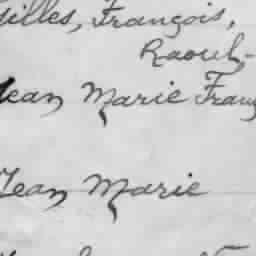 Gilles, François,
Raoul-
Jean Marie Franç
Jean Marie